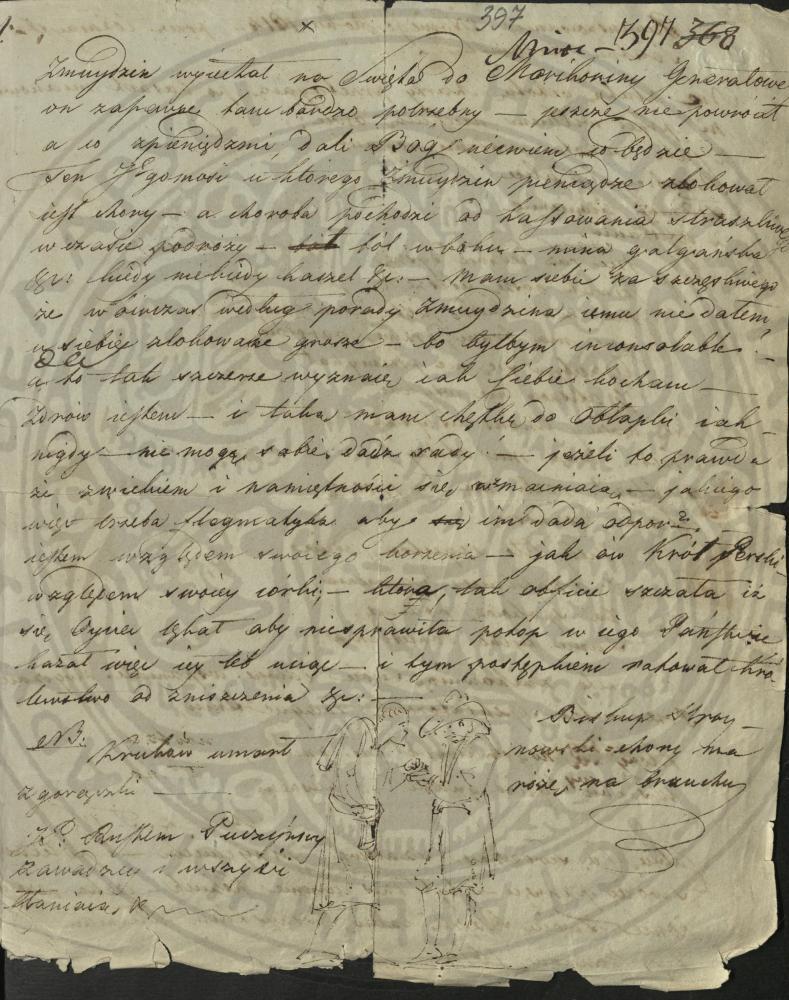 397
397 368
Żmuydzin wyjechał na Święta do Generałowe
on zapewne tam bardzo potrzebny — jeszcze nie powrócił
a co z pieniędzmi, dali Bóg niewiem co będzie —
Ten Jegomość u którego Żmuydzin pieniądze zlokował
iest chory — a choroba pochodzi od hassowania straszliwego
w czasie podróży — ból w boku — mina galgańska
&c: kiedy niekiedy kaszel &c: — mam siebie za szczęśliwego
że wówczas według porady Żmuydzina iemu nie dałem
u siebie zlokowane grosze — bo byłbym inconsolable! —
a to tak szczerze wyznaię iak siebie kocham —
Zdrów iestem — i taką mam chętkę do obłapki iak
nigdy — nie mogę sobie dadz rady! — jeżeli to prawda
że z wiekiem i namiętności się wzmacniaią — jakiego
więc trzeba flegmatyka aby im dadź odpor?
iestem względem swoiego — jak ów Król Perski
względem swoiey córki, — która, tak obficie szczała iż
się Oyciec lękał aby niesprawiła potop w iego Państwie
kazał więc iey łeb uciąć — i tym postępkiem ratował Kró-
lewstwo od zniszczenia &c: —
NB:
Kruków umarł
z gorączki —
Biskup Stroy-
nowski chory ma
różę, na brzuchu
Puczyńscy
Zawadzcy i wszyscy
kłaniaią,